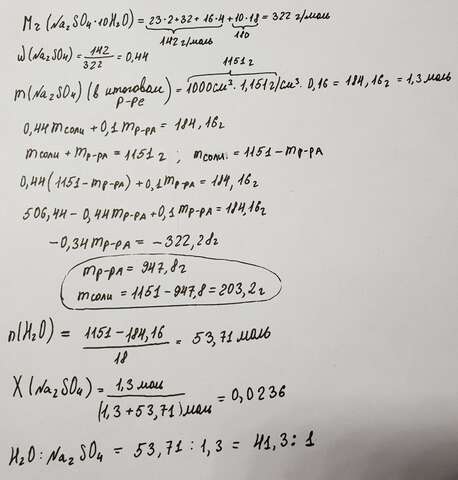 Mr (Na₂SO₄·10H₂O) = 23·2+32+16·4+10·18 = 322 г/моль
142 г/моль 180
ω(Na₂SO₄) = 142/322 = 0,44
1151 г
m(Na₂SO₄) (в итоговом р-ре) = 1000см³·1,151г/см³·0,16 = 184,16г = 1,3 моль
0,44 mсоли + 0,1 mр-ра = 184,16г
mсоли + mр-ра = 1151 г ; mсоли = 1151 - mр-ра
0,44(1151 - mр-ра) + 0,1 mр-ра = 184,16г
506,44 - 0,44mр-ра + 0,1 mр-ра = 184,16г
-0,34mр-ра = -322,28г
mр-ра = 947,8г
mсоли = 1151 - 947,8 = 203,2г
n(H₂O) = 1151-184,16/18 = 53,71 моль
X(Na₂SO₄) = 1,3 моль/(1,3+53,71)моль = 0,0236
H₂O : Na₂SO₄ = 53,71 : 1,3 = 41,3 : 1